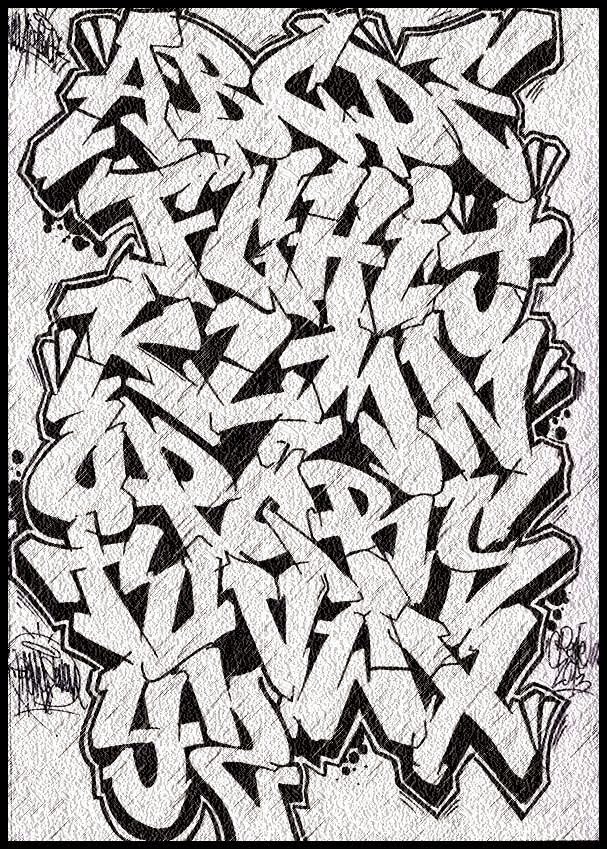 ABCDE
FGHIJ
KLMN
OPQRS
TUVWX
YZ